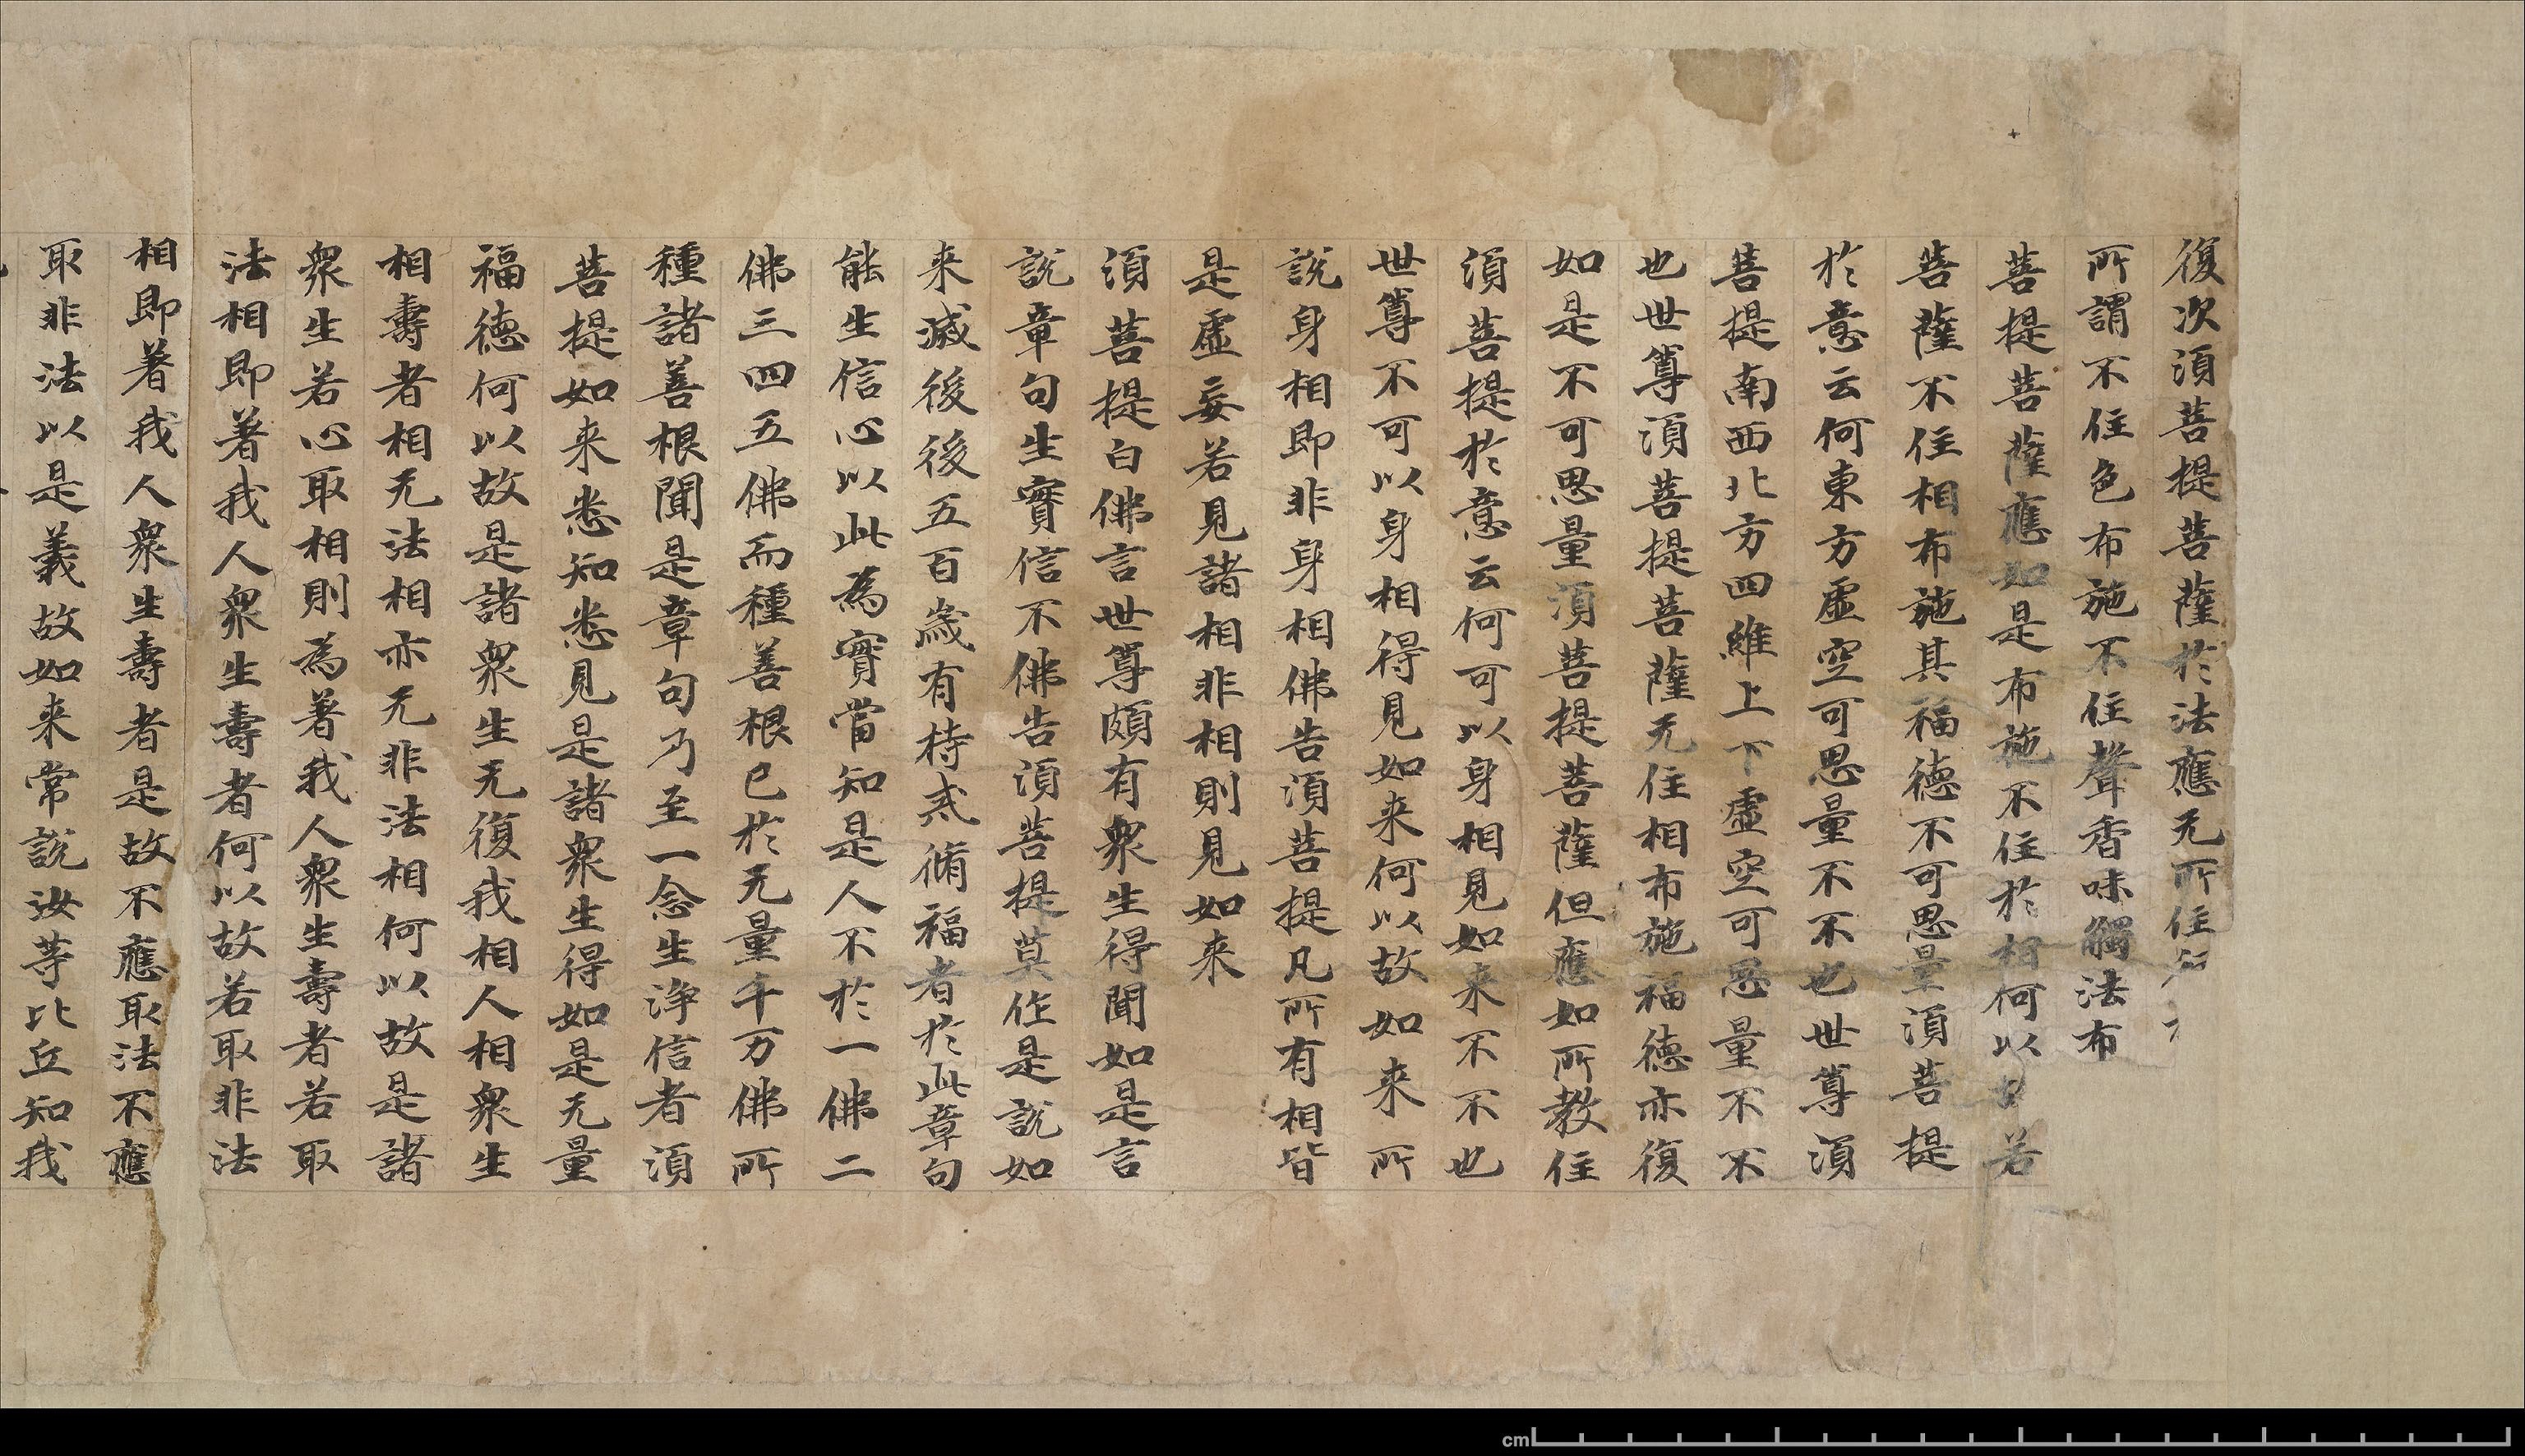 復次湏菩提菩薩於法應无所住
所謂不住色布施不住聲香味觸法布
菩提菩薩應如是布施不住於相何以 若
菩薩不住相布施其福德不可思量湏菩提
於意云何東方虛空可思量不不也世尊湏
菩提南西北方四維上下虛空可思量不不
也世尊湏菩提菩薩无住相布施福德亦復
如是不可思量湏菩提菩薩但應如所教住
湏菩提於意云何可以身相見如来不不也
世尊不可以身相得見如来何以故如来所
說身相即非身相佛告湏菩提凡所有相皆
是虛妄若見諸相非相則見如来
湏菩提白佛言世尊頗有衆生得聞如是言
說章句生實信不佛告湏菩提莫作是說如
来滅後後五百歲有持戒脩福者於此章句
能生信心以此為實當知是人不於一佛二
佛三四五佛而種善根已於无量千万佛所
種諸善根聞是章句乃至一念生淨信者湏
菩提如来悉知悉見是諸衆生得如是无量
福德何以故是諸衆生无復我相人相衆生
相壽者相无法相亦无非法相何以故是諸
衆生若心取相則為著我人衆生壽者若取
法相即著我人衆生壽者何以故若取非法
相即著我人衆生壽者是故不應取法不應
取非法以是義故如来常說汝等比丘知我
cm